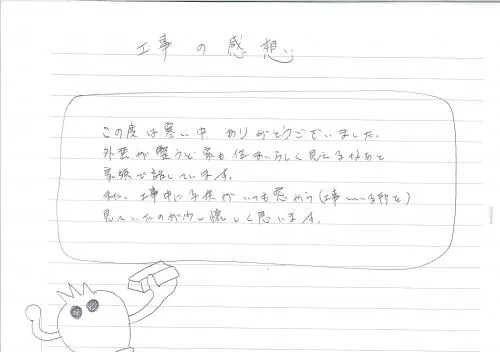 工事の感想
この度は寒い中、ありがとうございました。
外壁が整うと家も住まいらしく見えるなあと
家族で話しています。
また、工事中に子供がいつも窓から(工事している所を)
見ていたのが少し懐しく思います。